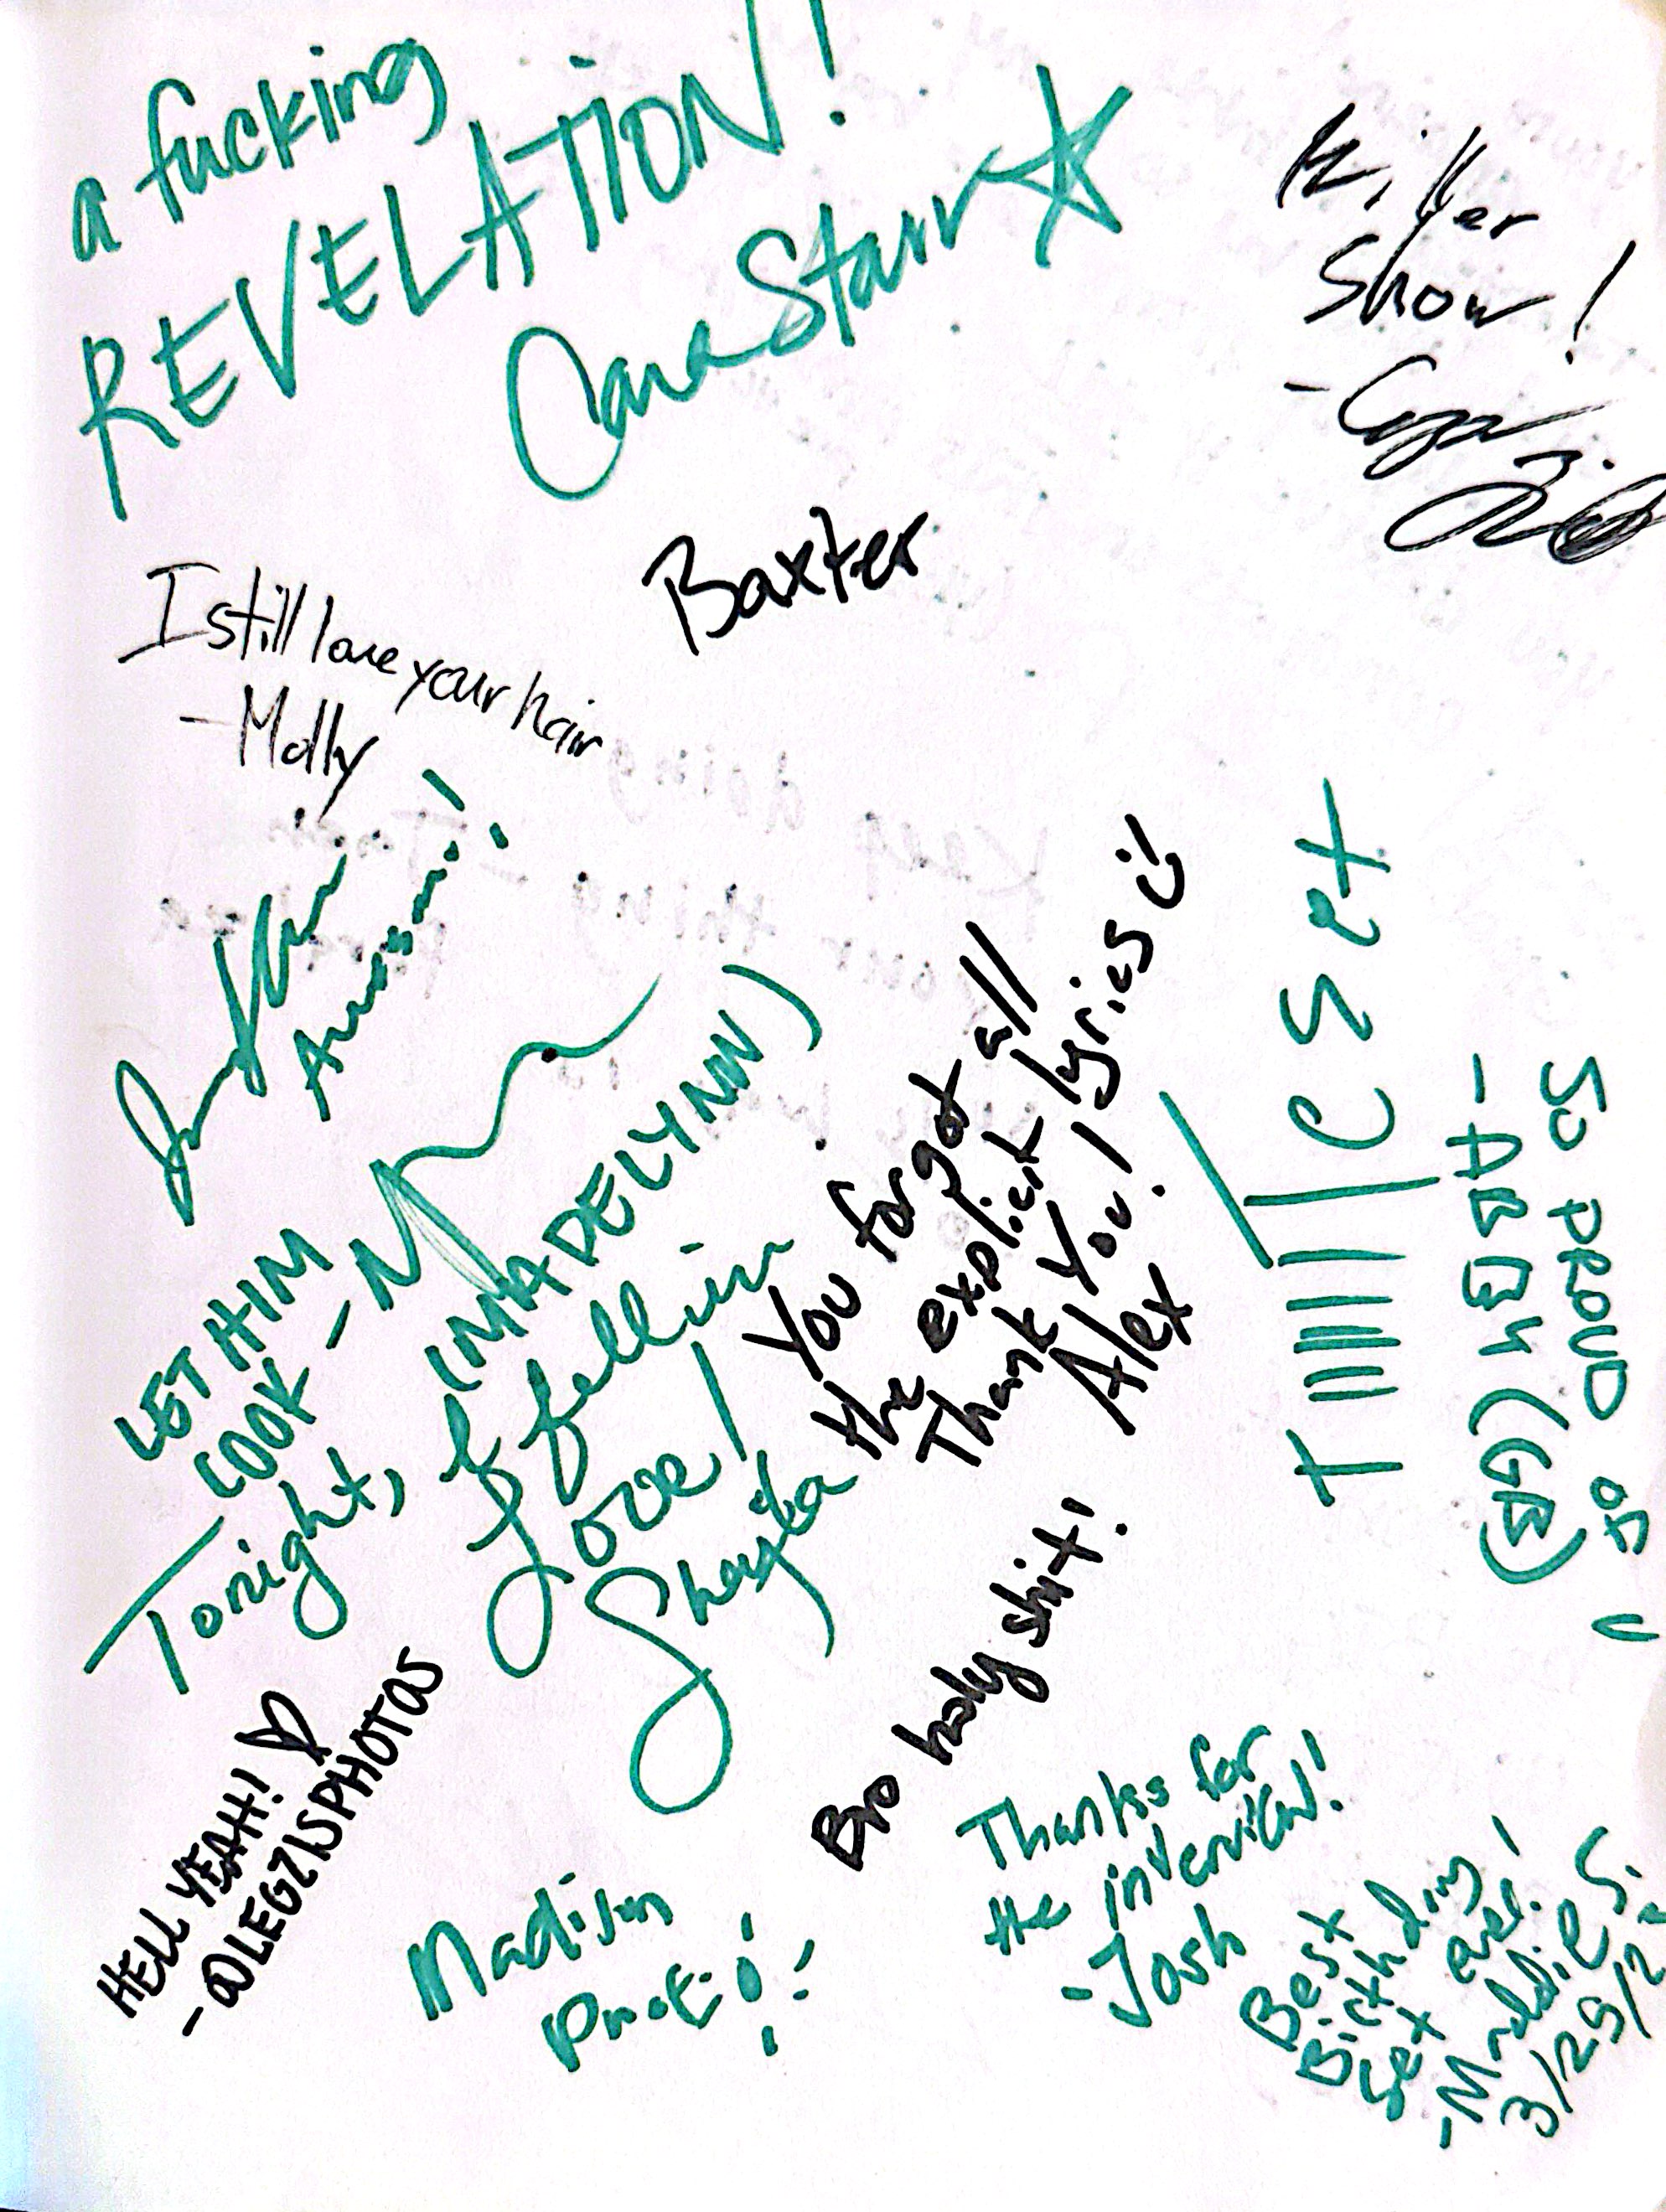 a fucking
REVELATION!
Cara Starr
Killer
Show!
Baxter
I still love your hair
-Molly
Awesome!
LET HIM
COOK -M
(MADELYNN)
Tonight, I fell in
love!
You forgot all
the explicit lyrics :)
Thank you!
Alex
Set
So proud of
HELL YEAH! ♡
-@LEGZISPHOTOS
Bro holy shit!
Madison
Thanks for
the interview!
-Josh
Best
Birthday
Set ever!
-Maddie S.
3/29/2